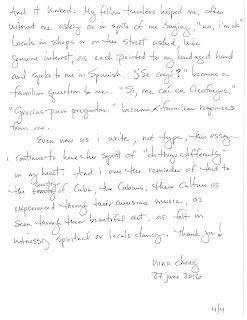 And it worked. My fellow travelers helped me, often
without me asking or in spite of me saying, "no, i'm ok."
Locals in shops or on the street asked, with
genuine interest, as each pointed to my bandaged hand
and spoke to me in Spanish. "¿Se cayó?" became a
familiar question to me. "Si, me caí en Cienfuegos."
"Gracias por preguntar." became familiar responses
from me.
Even now as i write, not type, this essay
i continue to have the spirit of "do things differently"
in my heart. And i owe the reminder of that to
the country
the of Cuba, the Cubans, their culture as
experienced through their awesome music, as
seen through their beautiful art, as felt in
witnessing spiritual or locals dancing. Thank you
nina chong
27 june 2016
4/4